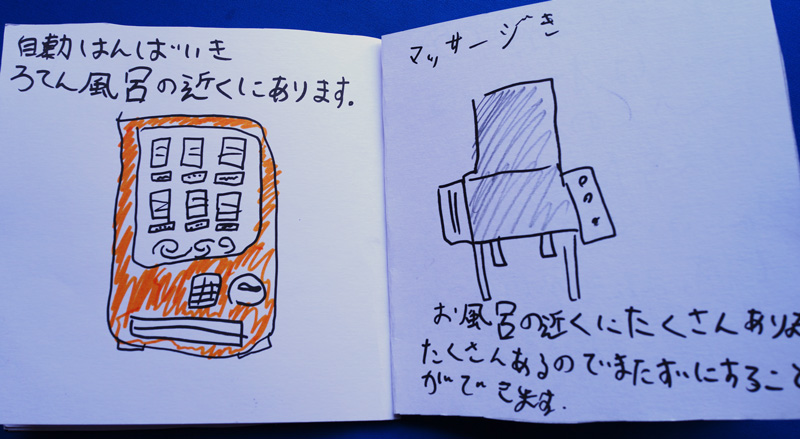 自動はんばいき
ろてん風呂の近くにあります.
マッサージき
お風呂の近くにたくさんあります
たくさんあるのでまたずにすること
ができます.